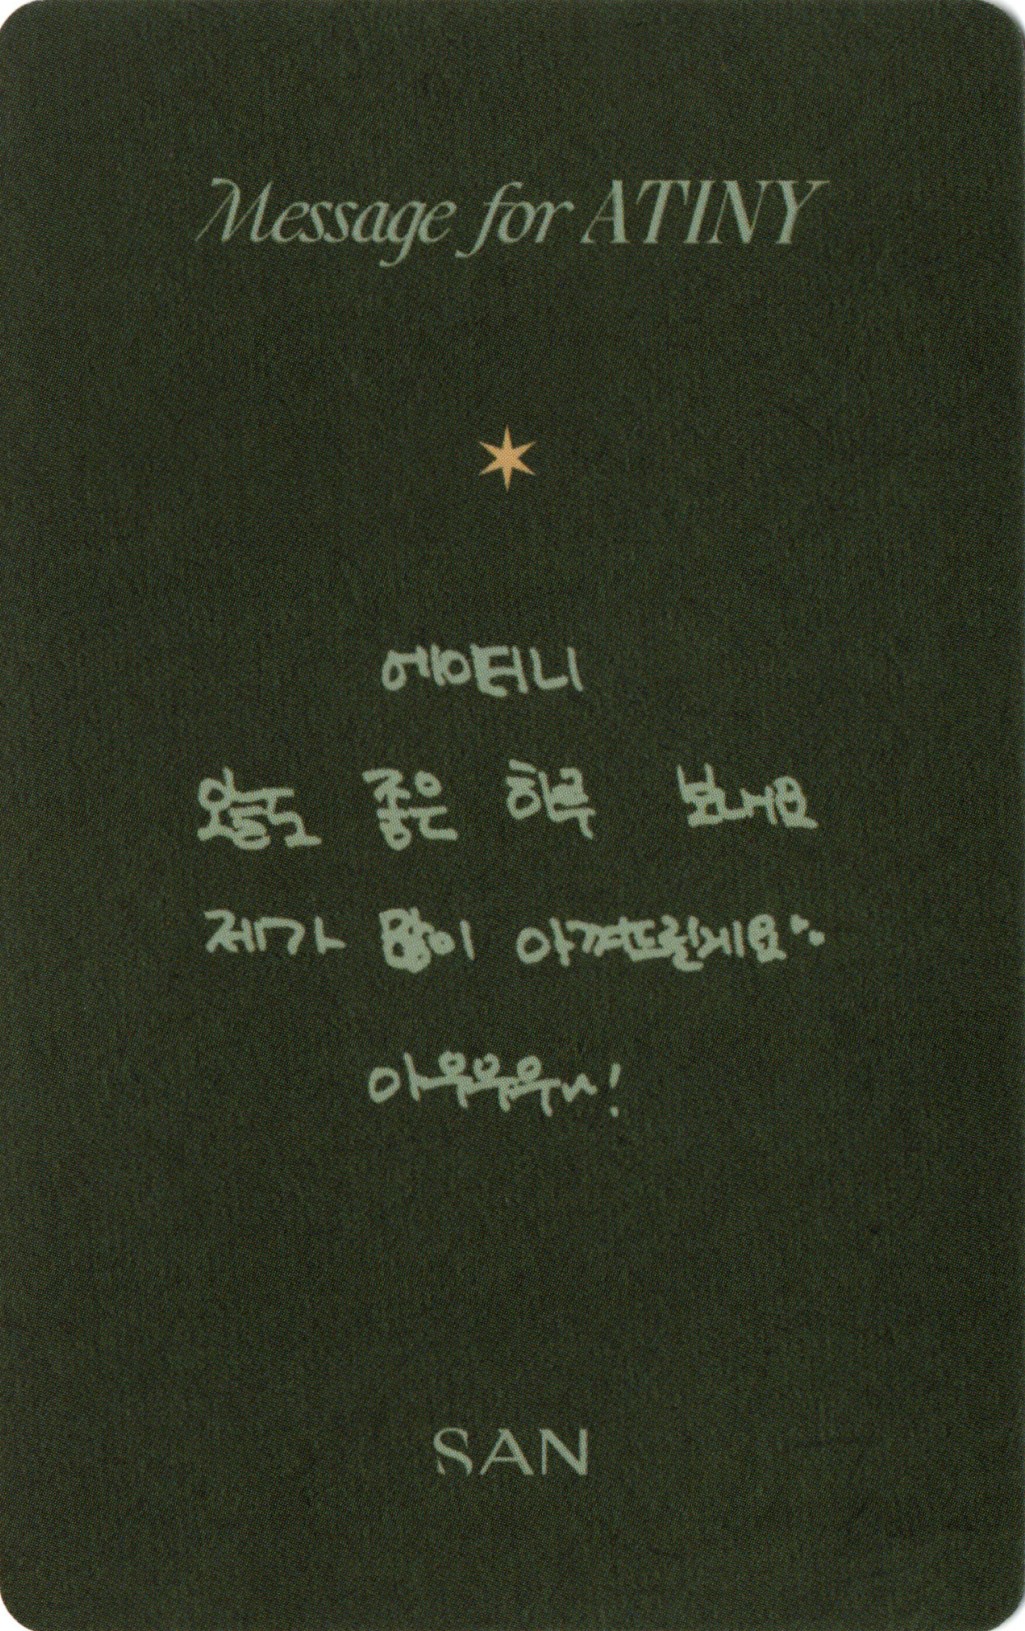 Message for ATINY
에이티니
오늘도 좋은 하루 보내요
제가 많이 아껴드릴게요
아우우우~!
SAN